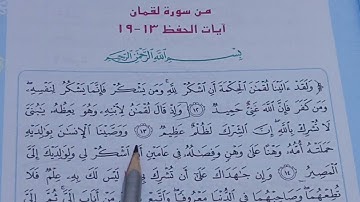 من سورة لقمان
آيات الحفظ ١٣-١٩
بِسْمِ اللَّهِ الرَّحْمَٰنِ الرَّحِيمِ
﴿ وَلَقَدْ ءَاتَيْنَا لُقْمَٰنَ ٱلْحِكْمَةَ أَنِ ٱشْكُرْ لِلَّهِ ۚ وَمَن يَشْكُرْ فَإِنَّمَا يَشْكُرُ لِنَفْسِهِۦ ۖ
وَمَن كَفَرَ فَإِنَّ ٱللَّهَ غَنِىٌّ حَمِيدٌ ١٢ وَإِذْ قَالَ لُقْمَٰنُ لِٱبْنِهِۦ وَهُوَ يَعِظُهُۥ يَٰبُنَىَّ
لَا تُشْرِكْ بِٱللَّهِ ۖ إِنَّ ٱلشِّرْكَ لَظُلْمٌ عَظِيمٌ ١٣ وَوَصَّيْنَا ٱلْإِنسَٰنَ بِوَٰلِدَيْهِ
حَمَلَتْهُ أُمُّهُۥ وَهْنًا عَلَىٰ وَهْنٍ وَفِصَٰلُهُۥ فِى عَامَيْنِ أَنِ ٱشْكُرْ لِى وَلِوَٰلِدَيْكَ إِلَىَّ
ٱلْمَصِيرُ ١٤ وَإِن جَٰهَدَاكَ عَلَىٰٓ أَن تُشْرِكَ بِى لَيْسَ لَكَ بِهِۦ عِلْمٌ فَلَا
تُطِعْهُمَا وَصَاحِبْهُمَا فِى ٱلدُّنْيَا مَعْرُوفًا مَنْ أَنَابَ إِلَىَّ ثُمَّ إِلَىَّ